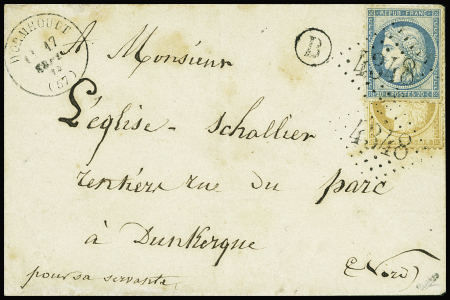 WORMHOUDT
17
SEPT.
(57)
B
REPUB. FRANC.
POSTES
4348
4348
A Monsieur
Léglise-Schallier
rentière rue du parc
à Dunkerque
(Nord)
pour sa servante